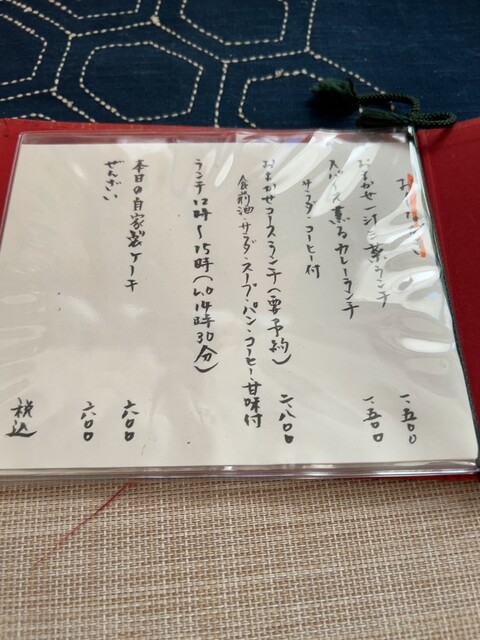 おまかせ一汁三菜ランチ 一、五〇〇
スパイス薫るカレーランチ 一、五〇〇
サラダ、コーヒー付
おまかせコースランチ(要予約) 二、八〇〇
食前酒・サラダ・スープ・パン・コーヒー甘味付
ランチ12時〜15時(L.O 14時30分)
本日の自家製ケーキ 六〇〇
ぜんざい 六〇〇
税込